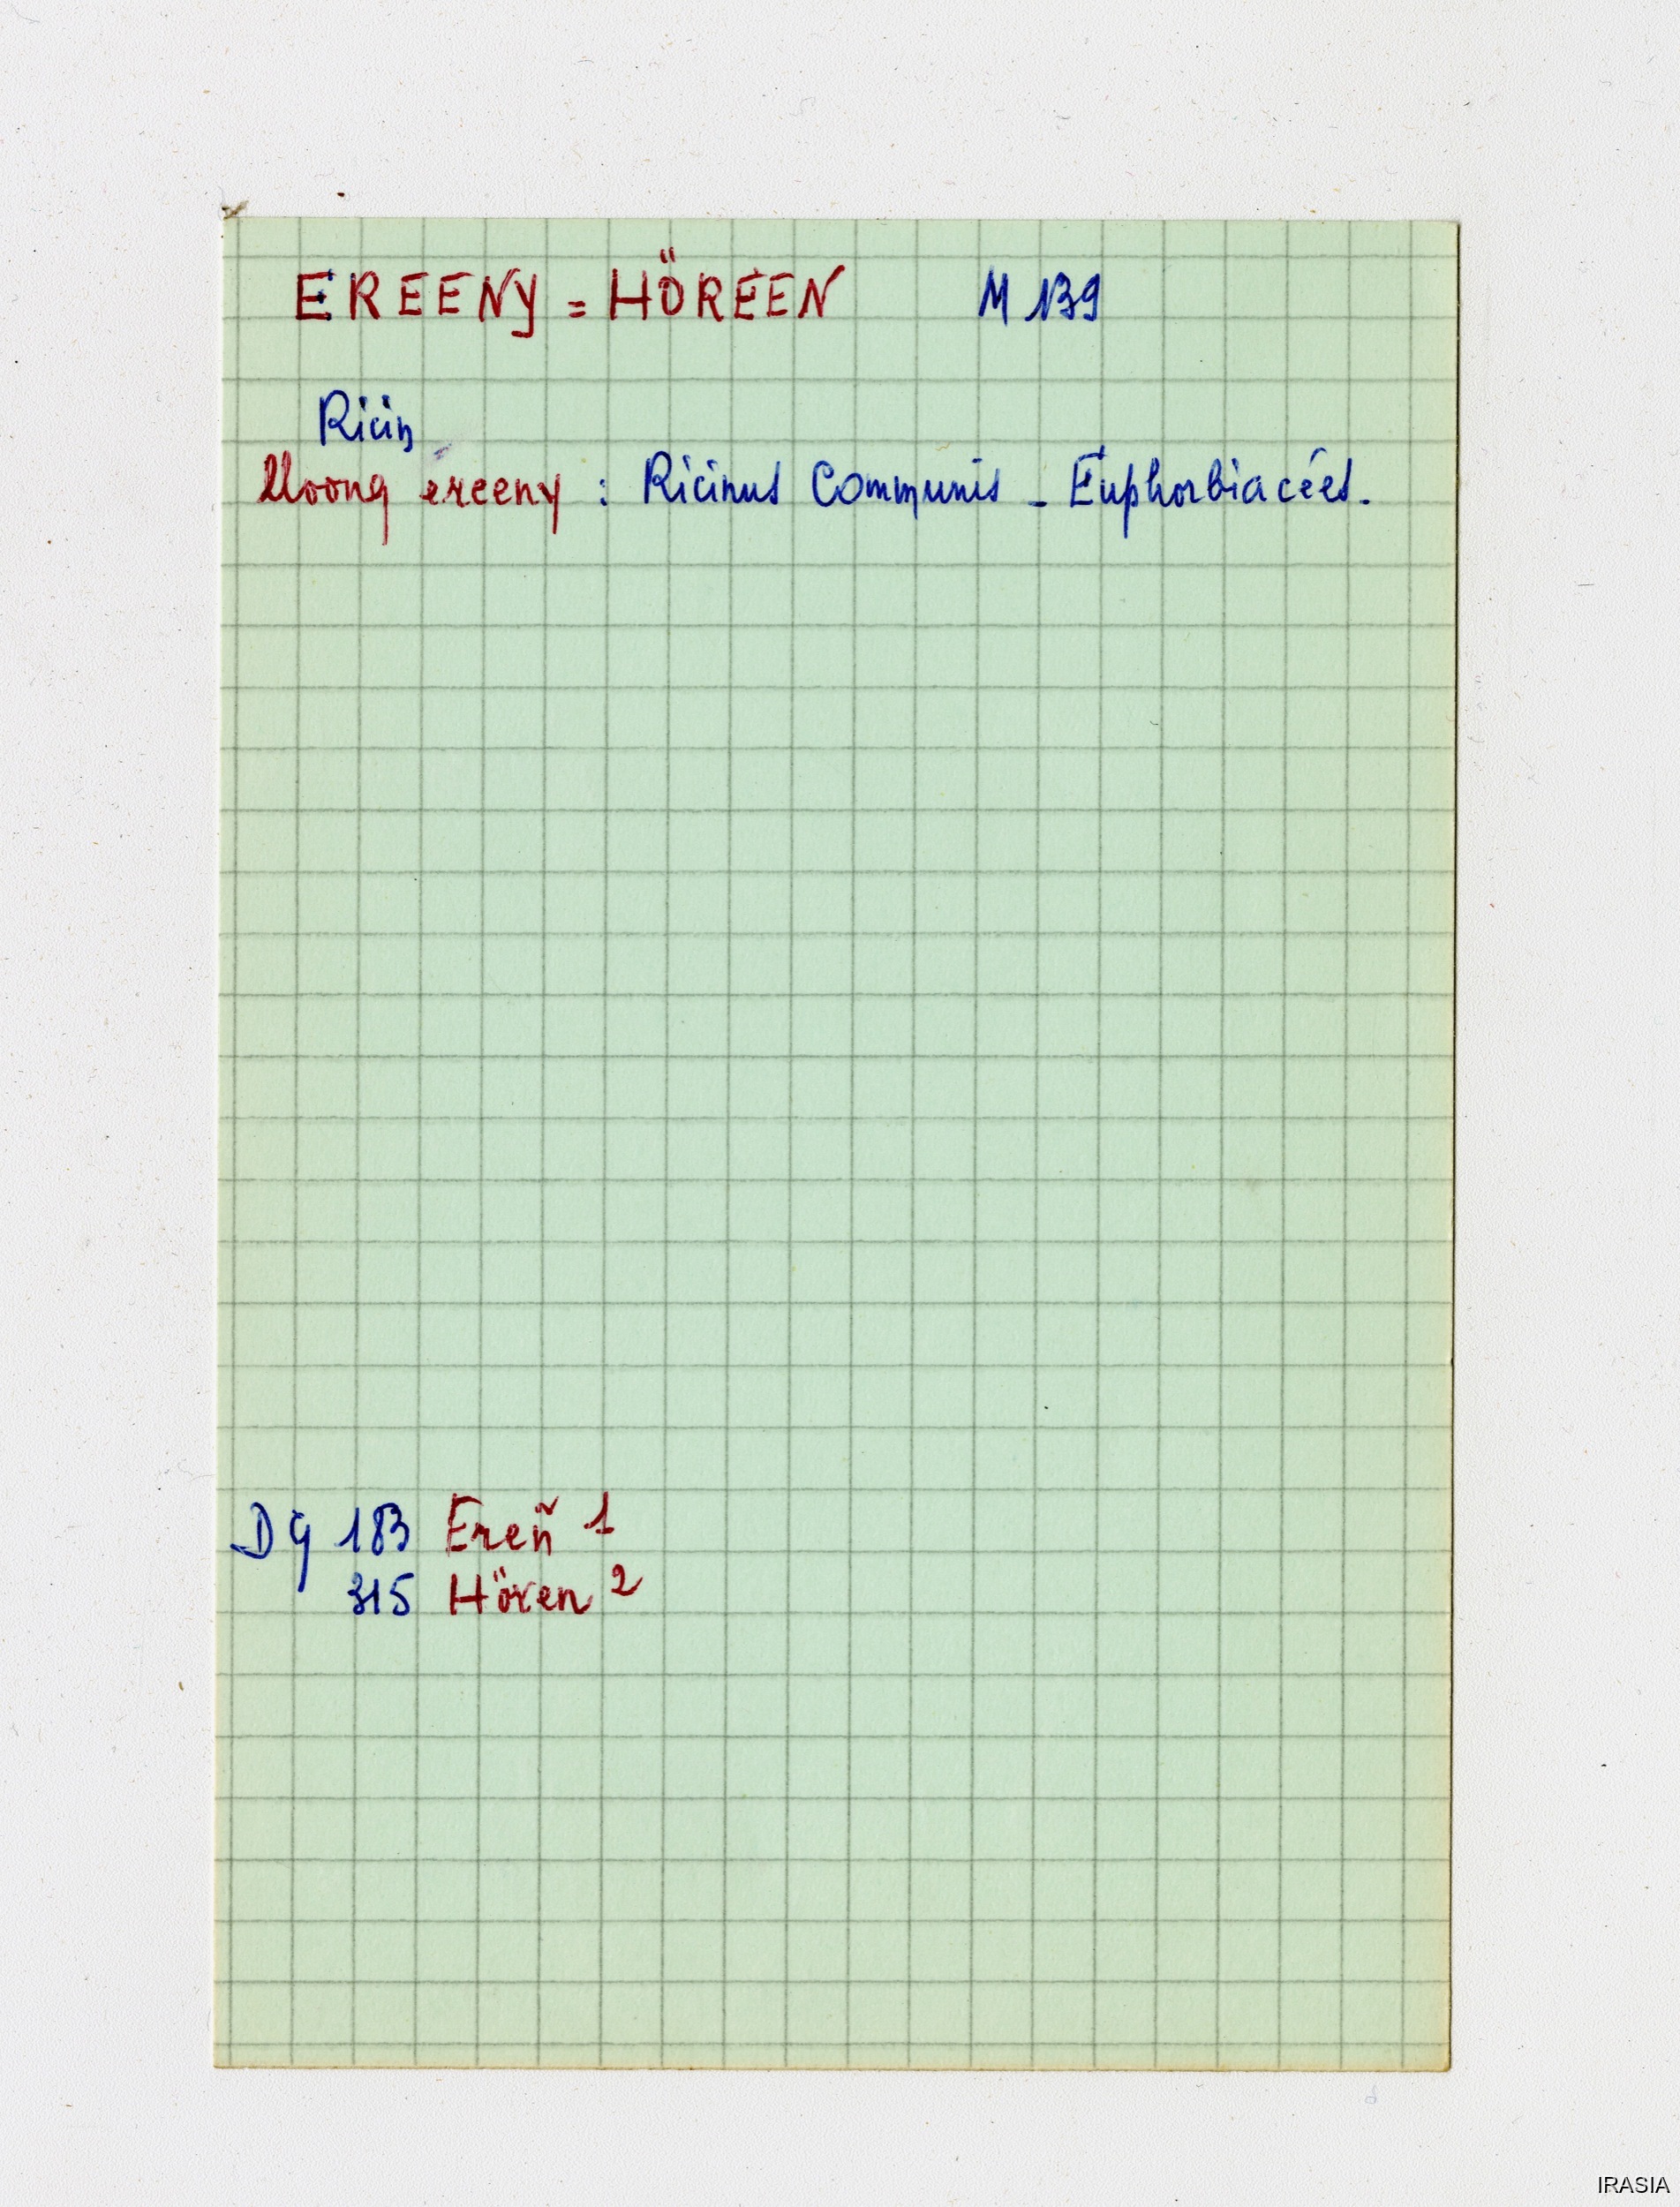 EREENY = HÖREEN M 139
Ricin
Uoong ereeny : Ricinus Communis - Euphorbiacées.
Dg 183 Ereñ 1
315 Hören 2
IRASIA